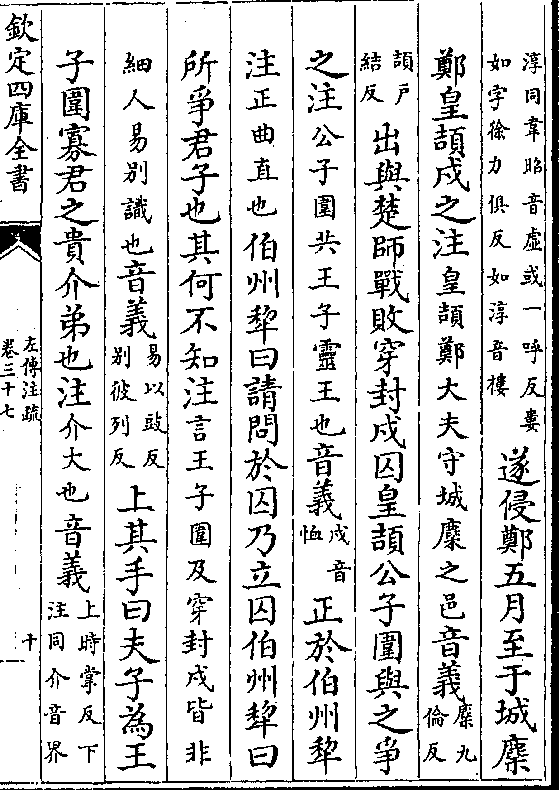 淳同韋昭音虛或一呼反婁
如字徐力俱反如淳音樓
遂侵鄭五月至于城麇
鄭皇頡戍之注皇頡鄭大夫守城麇之邑音義麇九
倫反
頡戸
結反
出與楚師戰敗穿封戍囚皇頡公子圍與之爭
之注公子圍共王子靈王也音義戍音
恤
正於伯州犂
注正曲直也伯州犂曰請問於囚乃立囚伯州犂曰
所爭君子也其何不知注言王子圍及穿封戍皆非
細人易别識也音義易以豉反
别彼列反
上其手曰夫子為王
子圍寡君之貴介弟也注介大也音義上時掌反下
注同介音界
欽定四庫全書
左傳注疏
卷三十七
十